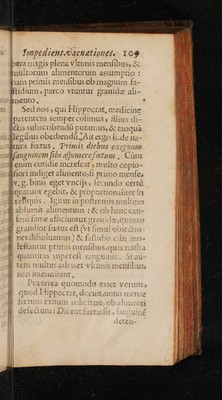 Impedient. vacuationes. 109
pera magis plena vltimis mensibus, &
multorum alimentorum assumptio :
nam primis mensibus ob magnum fa-
stidium, parco vtuntur grauidæ ali-
mento.
Sed nos, qui Hippocrat. medicinę
parentem semper colimus, illius di-
ctis subscribendū putamus, & tanquā
legibus obediendū. At ergo si de na-
tura fœtus. Primis diebus exiguum
sanguinem sibi assumere fœtum. Cum
enim cotidie increscat, multo copio-
siori indiget alimento, si primo mense,
v. g. binis eget vncijs, secundo certè
quatuor egebit, & proportionaliter in
reliquis. Igitur in postremis multum
absumit alimentum : & ob hanc cau-
sam fame afficiuntur grauidæ, quanto
grandior fœtus est (vt simul obiectio-
nes dissoluamus) & fastidio cibi mo-
lestantur primis mensibus, quia multa
quantitas superest sanguinis. Si au-
tem multus adesset vltimis mensibus,
non
Præterea quomodo esset verum,
quod Hippocrat. docuit, nono mense
fœtum exitum solicitare, ob alimenti
defectum? Dicent fortasse, sanguinē
deten-